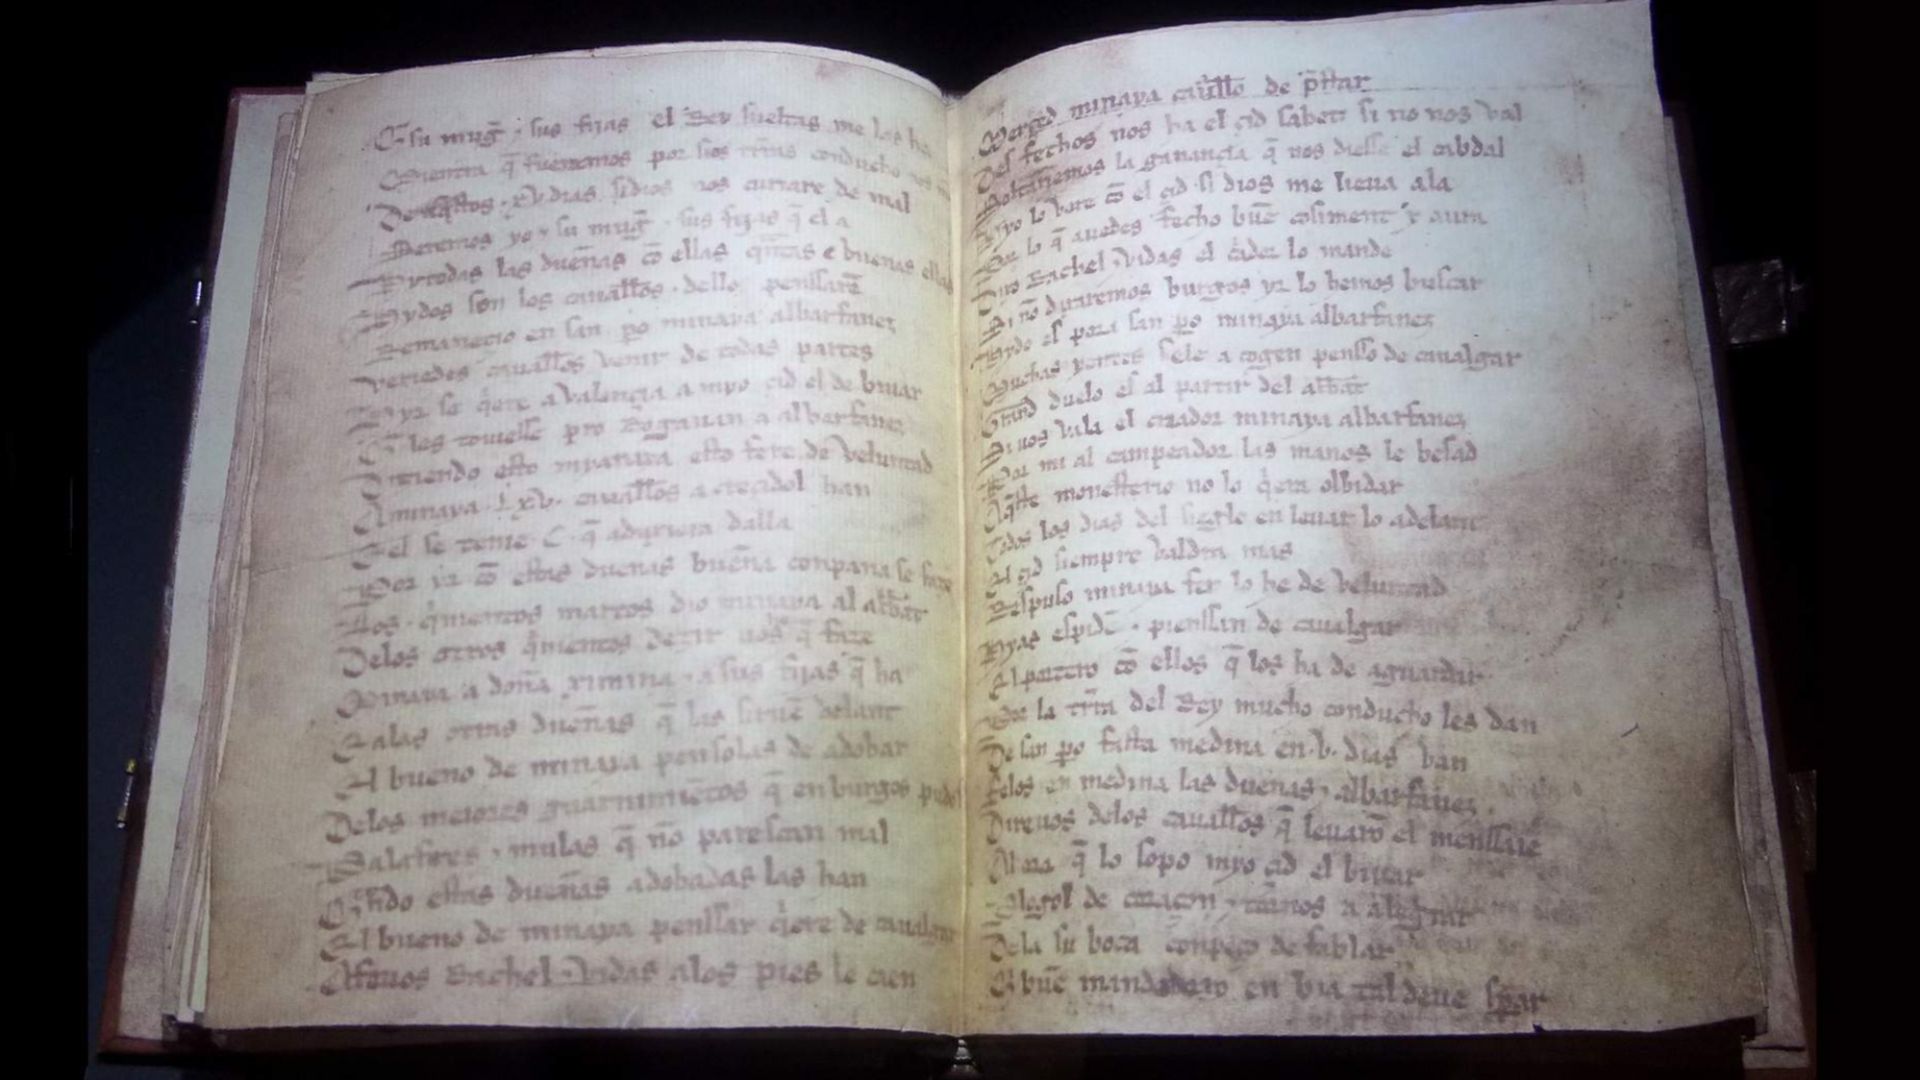 E su mugr̃ ⁊ sus fijas el Rey sueltas me las ha
Mientra q̃ fueremos por sus trr̃as conducho nos
De aq̃stos .xv. dias si dios nos curiare de mal
Seremos yo ⁊ su mugr̃ ⁊ sus fijas q̃ el a
Hy todas las dueñas cõ ellas q̃ntas e buenas ellas
Hydos son los cauall̃os ⁊ dello penssarã
Remanecio en san p̃o minaya albarfanez
Veriedes cauall̃os venir de todas partes
Hyr se q̃ere a valençia a myo çid el de biuar
Q̃ les touiesse pro Rogauan a albarfanez
Diziendo esto mianaya esto fere de veluntad
A minaya .Lxv. cauall̃os acreçidol han
E el se tenie .C. q̃ aduxiera dalla
Por yr cõ estas dueñas bueña conpana se faze
Los q̃nientos marcos dio minaya al abbat
Delos otros q̃nientos dezir uos q̃ faze
Minaya a doña ximina ⁊ a sus fijas q̃ ha
E alas otras dueñas q̃ las siruẽ delant
El bueno de minaya pensolas de adobar
Delos meiores guarnimiẽtos q̃ en burgos
Palafres ⁊ mulas q̃ nõ parescan mal
Q̃ndo estas dueñas adobadas las han
El bueno de minaya penssar q̃ere de caualgar
Afeuos Rachel ⁊ Vidas alos pies le caen
Merçed minaya cauall̃o de p̃star
Desfechos nos ha el çid sabet si no nos val
Soltariemos la ganançia q̃ nos diesse el cabdal
Hyo lo vere cõ el çid si dios me lieua ala
Por lo q̃ auedes fecho buẽ cosiment y aura
Dixo Rachel ⁊ Vidas el c̃ador lo mande
Si nõ dexaremos burgos yr lo hemos buscar
Hydo es pora san p̃o minaya albarfanez
Muchas yentes sele acogen pensso de caualgar
Grand duelo es al partir del abbat
Si uos vala el criador minaya albarfanez
Por mi al campeador las manos le besad
Aq̃ste monesterio no lo q̃era olbidar
Todos los dias del sieglo en leuar lo adelant
El çid siempre valdra mas
Respuso minaya fer lo he de veluntad
Hyas espidẽ ⁊ pienssan de caualgar
El portero cõ ellos q̃ los ha de aguardar
Por la trr̃a del Rey mucho conducho les dan
De san p̃o fasta medina en .v. dias van
Felos en medina las dueñas ⁊ albarfanez
Direuos delos cauall̃os q̃ leuarõ el menssaie
Al ora q̃ lo sopo myo çid el de biuar
Plogol de coraçon ⁊ tornos a alegrar
Dela su boca conpeço de fablar
Q̃ buẽ mandadero en bia tal deue sperar